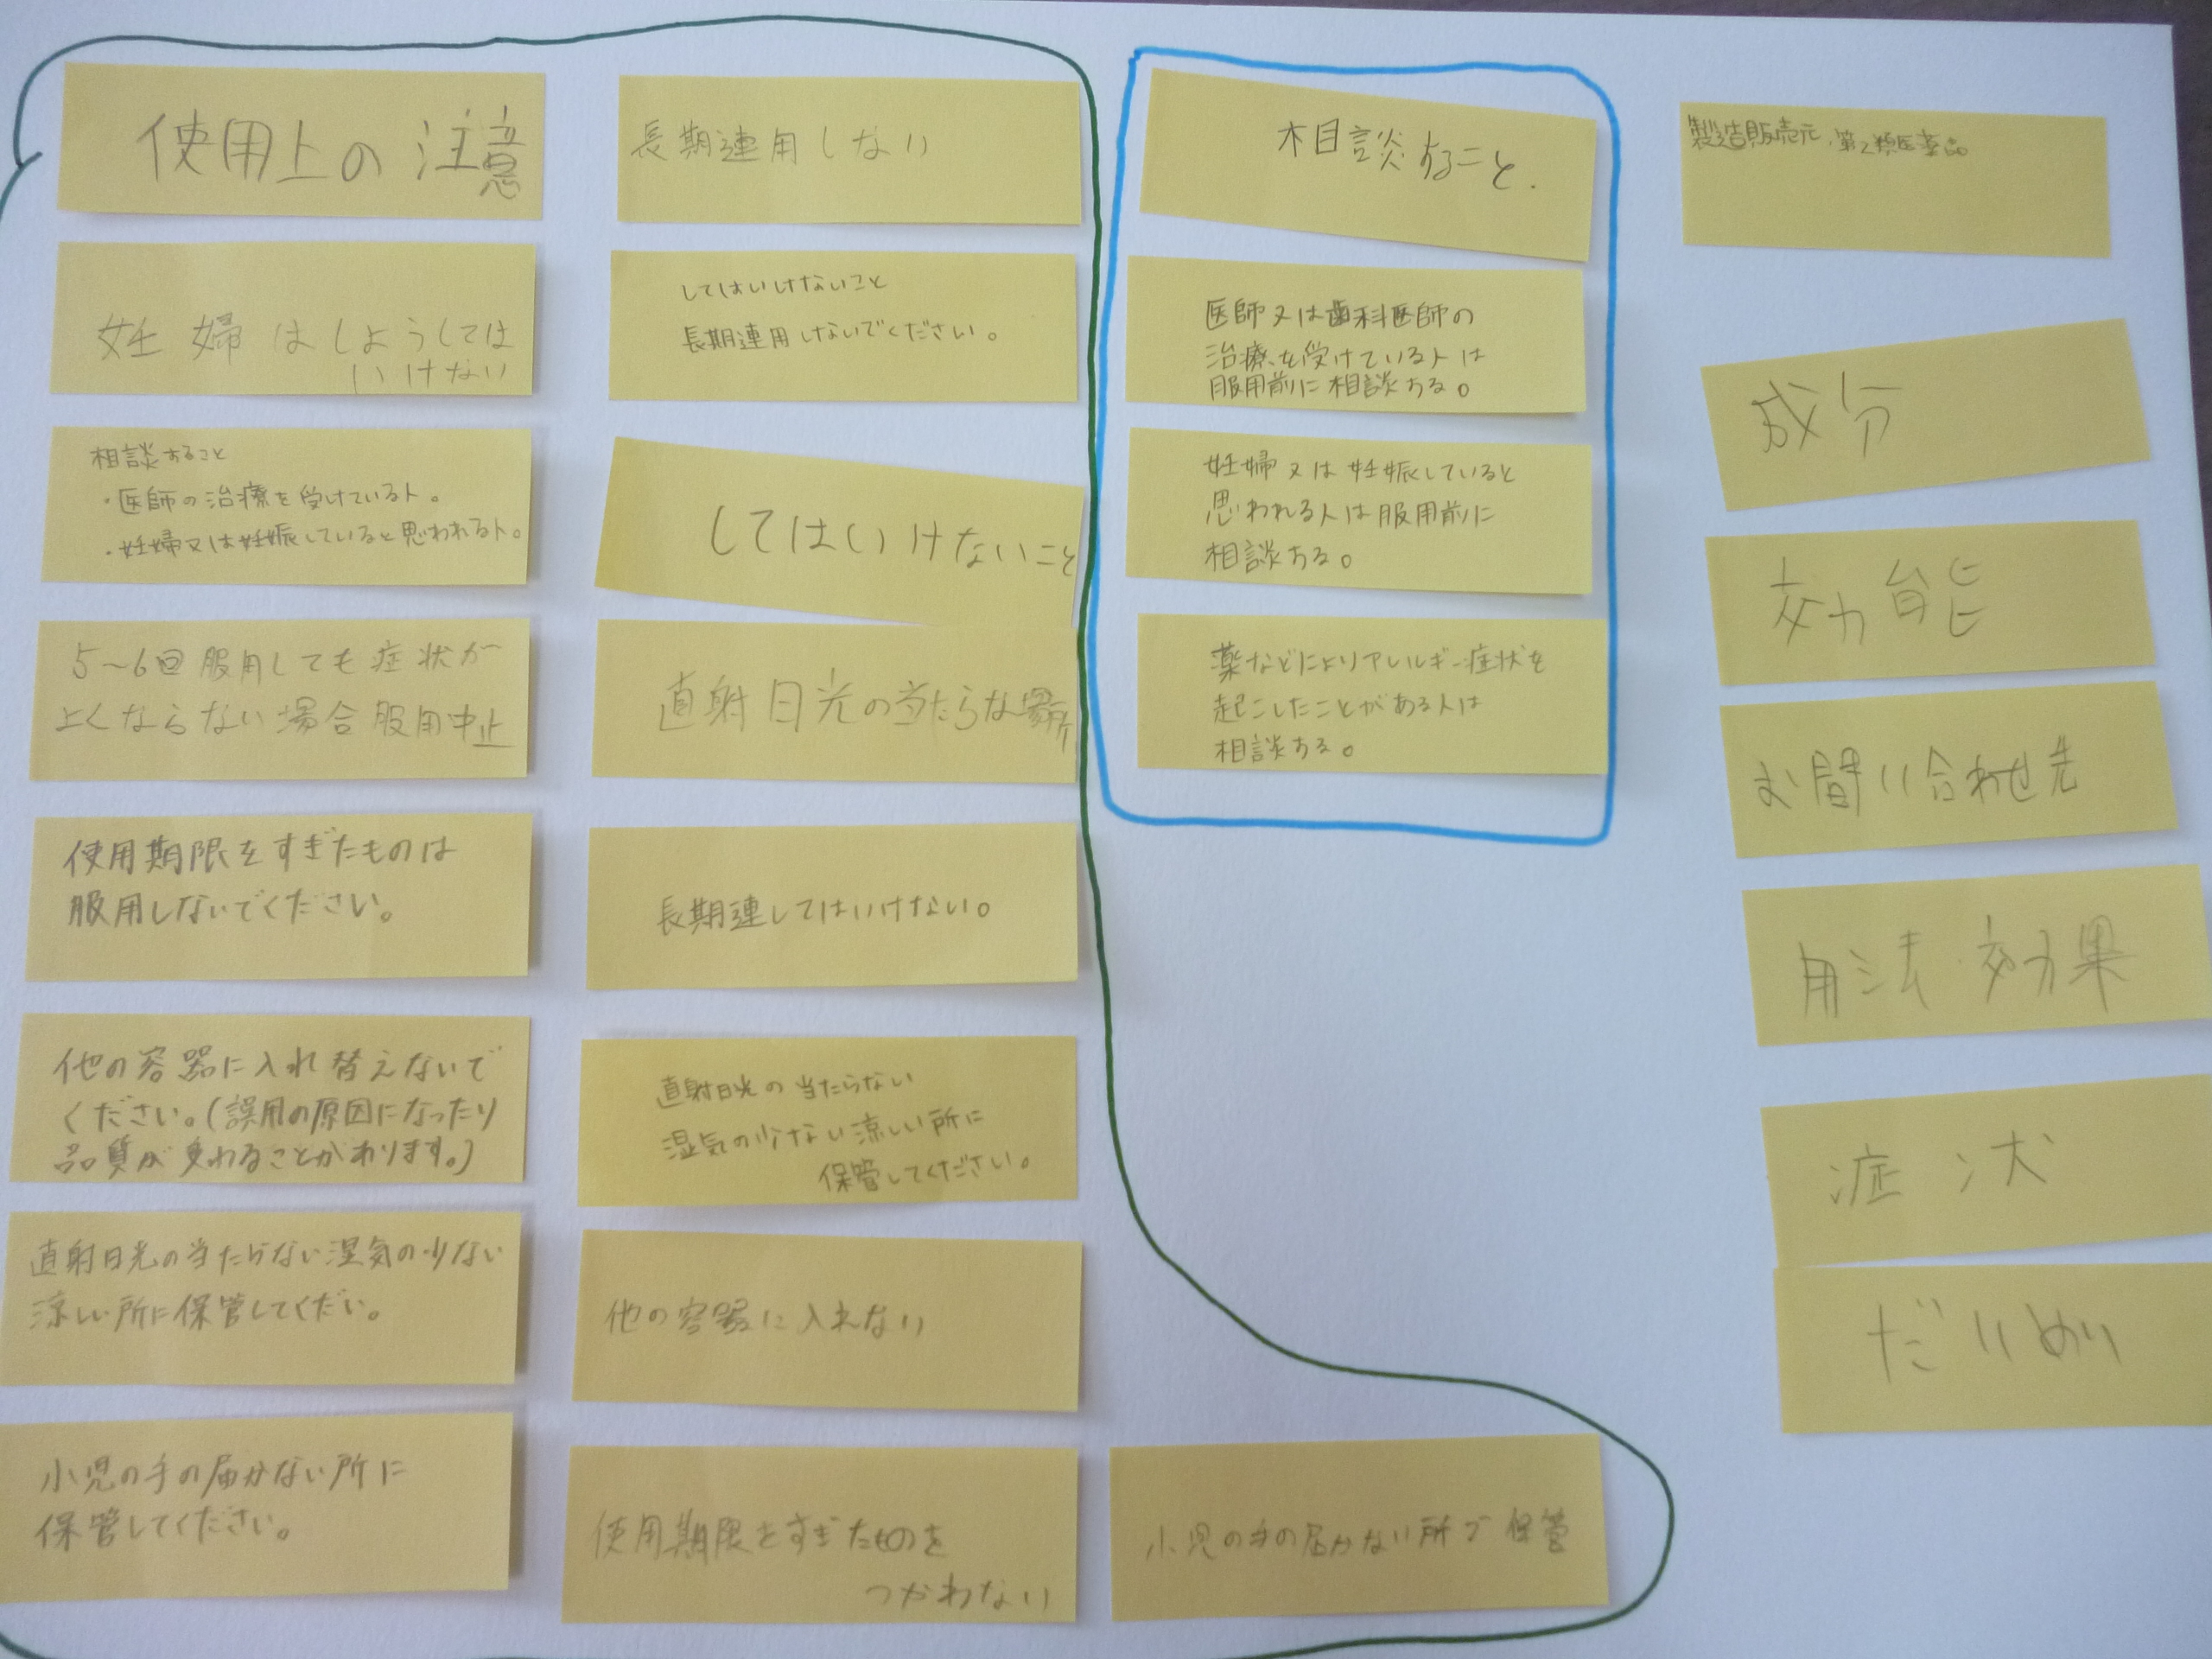 使用上の注意
妊婦はしようしては
いけない
相談すること
・医師の治療を受けている人。
・妊婦又は妊娠していると思われる人。
5〜6回服用しても症状が
よくならない場合服用中止
使用期限をすぎたものは
服用しないでください。
他の容器に入れ替えないで
ください。(誤用の原因になったり
品質が変わることがあります。)
直射日光の当たらない湿気の少ない
涼しい所に保管してくだい。
小児の手の届かない所に
保管してください。
長期連用しない
してはいけないこと
長期連用しないでください。
してはいけないこと
直射日光の当たらな場所
長期連してはいけない。
直射日光の当たらない
湿気の少ない涼しい所に
保管してください。
他の容器に入れない
使用期限をすぎたものを
つかわない
小児の手の届かない所で保管
相談すること.
医師又は歯科医師の
治療を受けている人は
服用前に相談する。
妊婦又は妊娠していると
思われる人は服用前に
相談する。
薬などによりアレルギー症状を
起こしたことがある人は
相談する。
製造販売元.第2類医薬品
成分
効能
お問い合わせ先
用法・効果
症状
だいめい